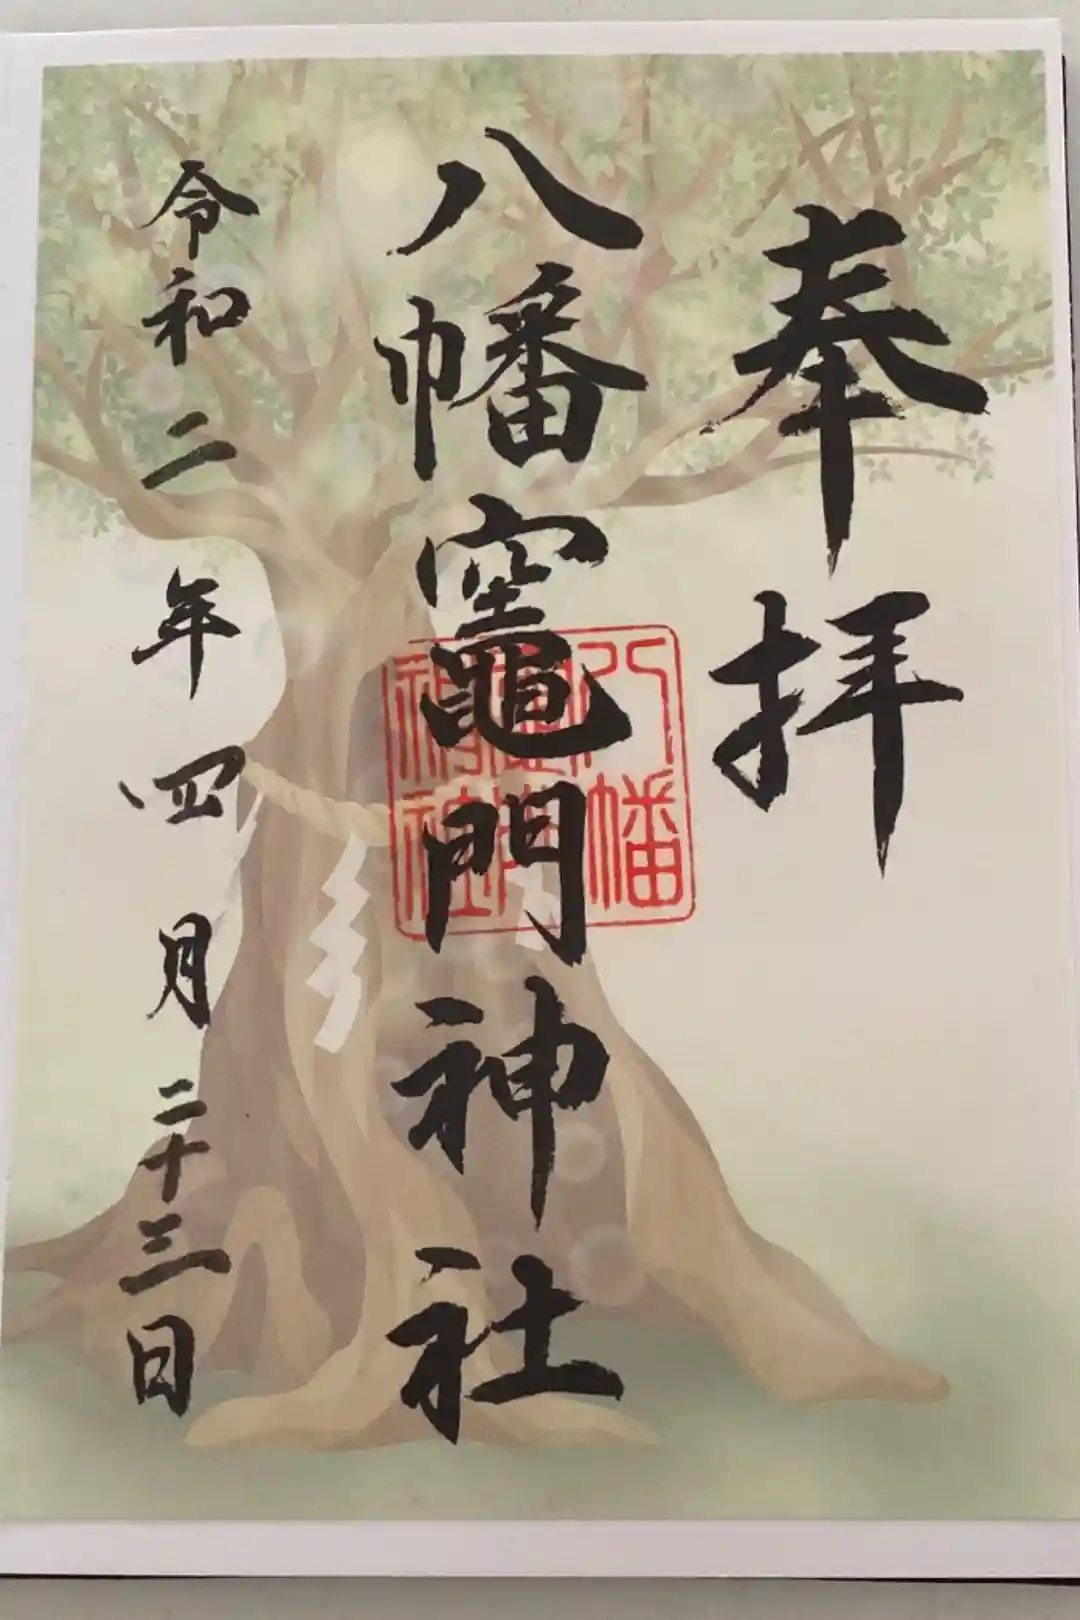 奉拝
八幡竈門神社
令和二年四月二十三日
八幡
神社